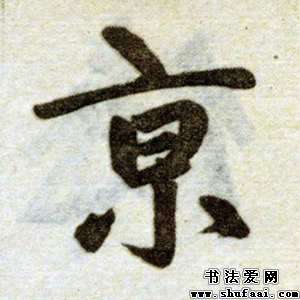 京
书法爱网
www.shufaai.com